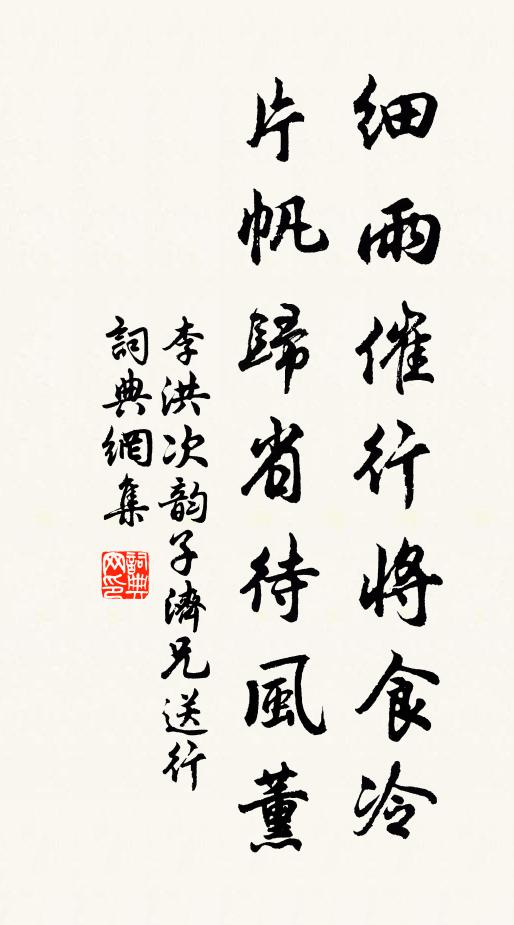 細雨催行將食冷
片帆歸省待風薰
李洪次韵子濟兄送行
詞典網集
詞典網印